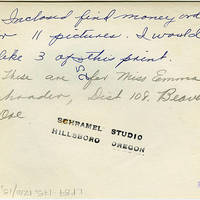 Inclosed find money or
11 pictures. I would
like 3 of this print.
25¢
These are for Miss Emma
Dist 108. Beaver
Ore
SCHRAMEL STUDIO
HILLSBORO OREGON